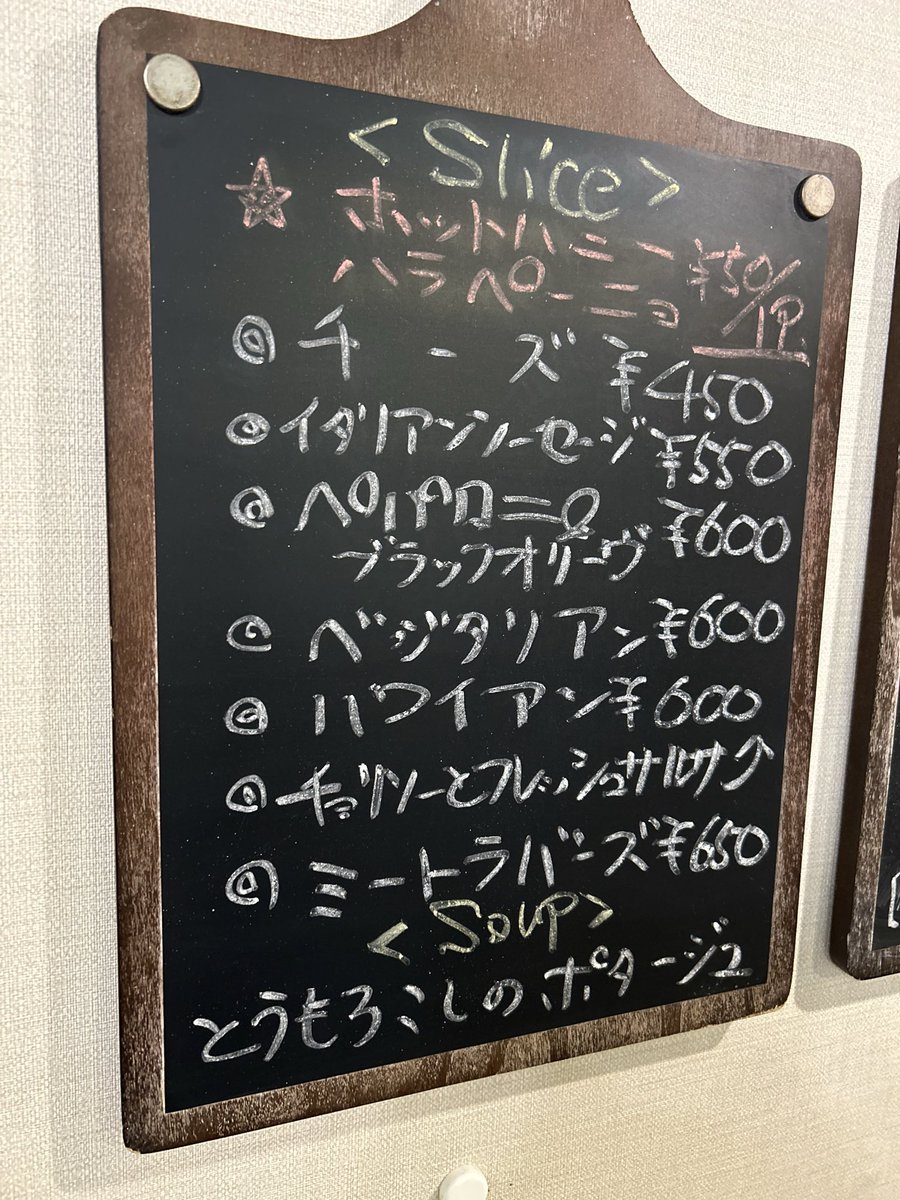 <Slice>
☆ ホットハニー
ハラペーニョ ¥50/1P.
◎ チーズ ¥450
◎ イタリアンソーセージ ¥550
◎ ペパロニ& ¥600
ブラックオリーヴ
◎ ベジタリアン ¥600
◎ ハワイアン ¥600
◎ チョリソーとフレッシュサルサ
◎ ミートラバーズ ¥650
<Soup>
とうもろこしのポタージュ